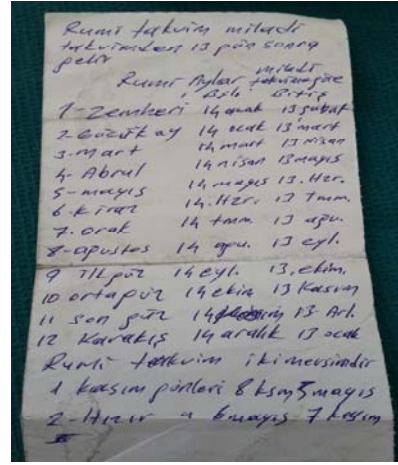 Rumi takvim miladi
takvimden 13 gün sonra
gelir
Rumi Aylar miladi takvime göre
Baş. Bitiş
1-Zemheri 14 ocak 13 şubat
2-Gücük ay 14 ocak 13 mart
3-Mart 14 mart 13 nisan
4-Abrul 14 nisan 13 mayıs
5-mayıs 14 mayıs 13. Hzr.
6-kiraz 14. Hzr. 13 Tmm.
7. orak 14 tmm 13 agu.
8-agustos 14 agu. 13 eyl.
9 İlk güz 14 eyl. 13. ekim.
10 orta güz 14 ekim 13 Kasım
11 Son güz 14 13 Arl.
12 Karakış 14 aralık 13 ocak
Rumi takvim iki mevsimdir
1 kasım günleri 8 ksm 5 mayıs
2-Hızır " 6 mayıs 7 kasım